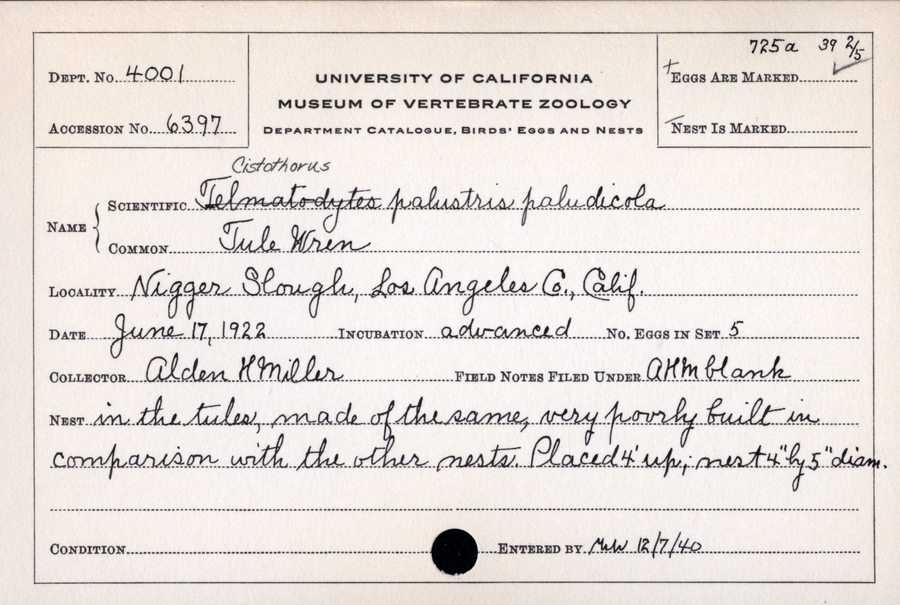 725a 39 2/5
DEPT. NO. 4001
UNIVERSITY OF CALIFORNIA
+EGGS ARE MARKED ✓
MUSEUM OF VERTEBRATE ZOOLOGY
ACCESSION NO. 6397
DEPARTMENT CATALOGUE, BIRDS' EGGS AND NESTS
NEST IS MARKED
Cistothorus
NAME { SCIENTIFIC Telmatodytes palustris paludicola
COMMON Tule Wren
LOCALITY Nigger Slough, Los Angeles Co., Calif.
DATE June 17, 1922 INCUBATION advanced NO. EGGS IN SET 5
COLLECTOR Alden H Miller FIELD NOTES FILED UNDER AHM blank
NEST in the tules, made of the same, very poorly built in
comparison with the other nests. Placed 4' up; nest 4" by 5" diam.
CONDITION ENTERED BY 12/7/40